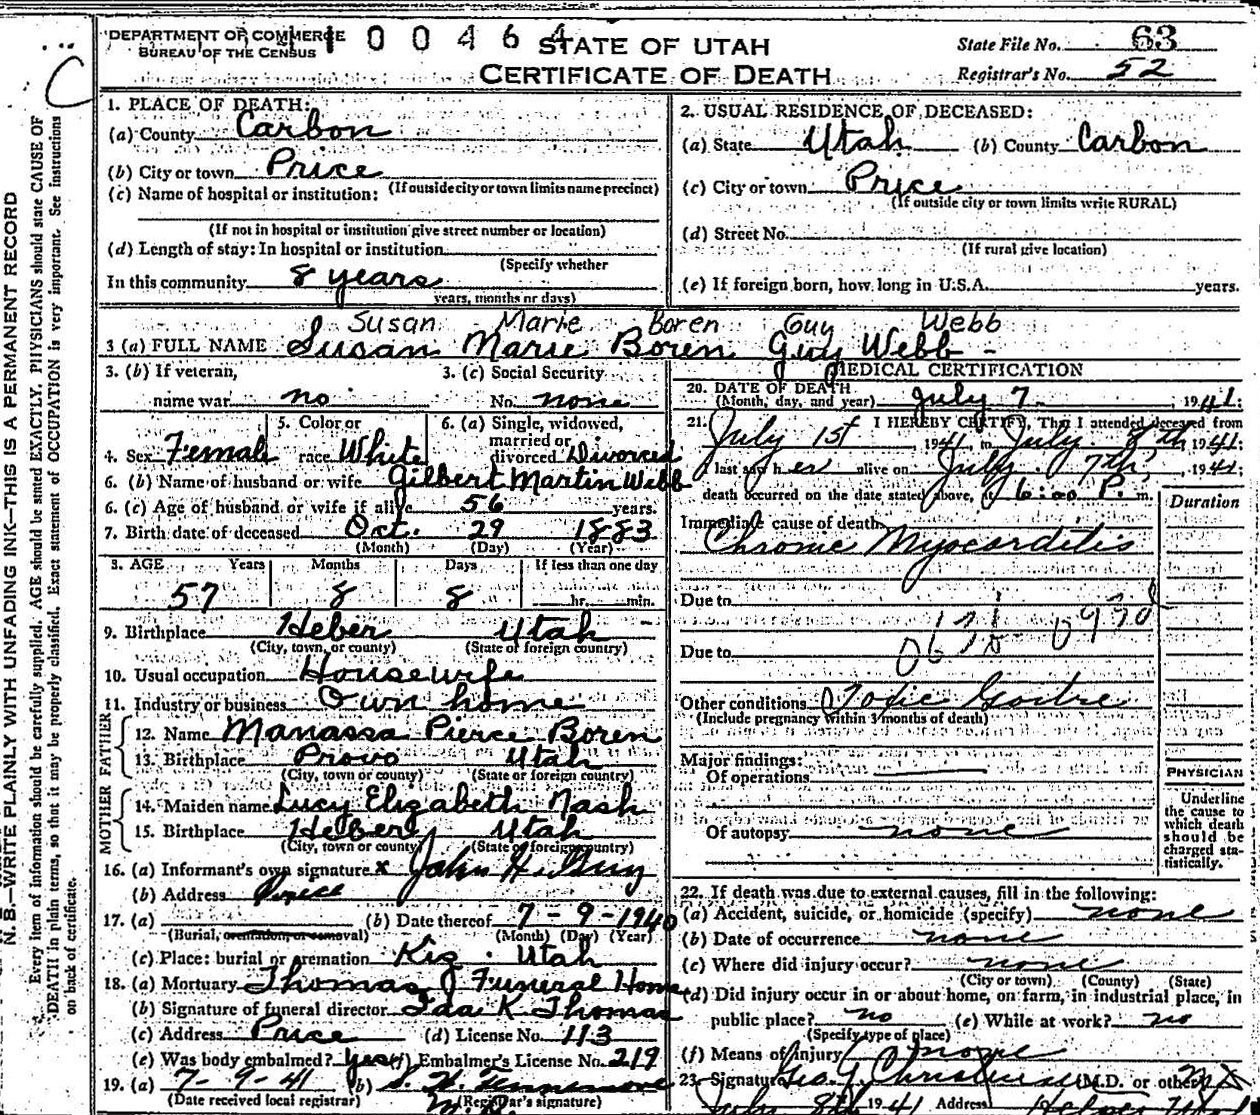 N. B.—WRITE PLAINLY WITH UNFADING INK—THIS IS A PERMANENT RECORD
Every item of information should be carefully supplied. AGE should be stated EXACTLY. PHYSICIANS should state CAUSE OF
DEATH in plain terms, so that it may be properly classified. Exact statement of OCCUPATION is very important. See instructions
on back of certificate.
C
DEPARTMENT OF COMMERCE
BUREAU OF THE CENSUS
00464
STATE OF UTAH
CERTIFICATE OF DEATH
State File No. 63
Registrar's No. 52
1. PLACE OF DEATH:
(a) County Carbon
(b) City or town Price
(If outside city or town limits name precinct)
(c) Name of hospital or institution:
(If not in hospital or institution give street number or location)
(d) Length of stay: In hospital or institution
(Specify whether
In this community 8 years
years, months or days)
2. USUAL RESIDENCE OF DECEASED:
(a) State Utah (b) County Carbon
(c) City or town Price
(If outside city or town limits write RURAL)
(d) Street No.
(If rural give location)
(e) If foreign born, how long in U.S.A. years.
Susan Marie Boren Guy Webb
3 (a) FULL NAME Susan Marie Boren Guy Webb -
3. (b) If veteran, 3. (c) Social Security
name war no No. none
4. Sex Female 5. Color or race White 6. (a) Single, widowed, married or divorced Divorced
6. (b) Name of husband or wife Gilbert Martin Webb
6. (c) Age of husband or wife if alive 56 years.
7. Birth date of deceased Oct. 29 1883
(Month) (Day) (Year)
8. AGE Years Months Days If less than one day
57 8 8 hr. min.
9. Birthplace Heber Utah
(City, town, or county) (State or foreign country)
10. Usual occupation Housewife
11. Industry or business Own home
FATHER
12. Name Manassa Pierce Boren
13. Birthplace Provo Utah
(City, town or county) (State or foreign country)
MOTHER
14. Maiden name Lucy Elizabeth Nash
15. Birthplace Heber Utah
(City, town or county) (State or foreign country)
16. (a) Informant's own signature x John H. Guy
(b) Address Price
17. (a) (b) Date thereof 7-9-1940
(Burial, cremation or removal) (Month) (Day) (Year)
(c) Place: burial or cremation Kiz Utah
18. (a) Mortuary Thomas J Funeral Home
(b) Signature of funeral director Ida K Thomas
(c) Address Price (d) License No. 113
(e) Was body embalmed? yes (f) Embalmer's License No. 219
19. (a) 7-9-41 (b)
(Date received local registrar) (Registrar's signature)
MEDICAL CERTIFICATION
20. DATE OF DEATH
(Month, day, and year) July 7 1941;
21. I HEREBY CERTIFY, That I attended deceased from
July 1st 1941 to July 8th, 1941;
I last saw her alive on July 7th, 1941;
death occurred on the date stated above, at 6:00 P. m.
Duration
Immediate cause of death
Chronic Myocarditis
Due to
Due to
Other conditions Toxic Goitre
(Include pregnancy within 3 months of death)
Major findings:
Of operations
Of autopsy none
PHYSICIAN
Underline
the cause to
which death
should be
charged sta-
tistically.
22. If death was due to external causes, fill in the following:
(a) Accident, suicide, or homicide (specify) none
(b) Date of occurrence none
(c) Where did injury occur? none
(City or town) (County) (State)
(d) Did injury occur in or about home, on farm, in industrial place, in
public place? no (e) While at work? no
(Specify type of place)
(f) Means of injury none
23. Signature Geo. J. Christensen (M.D. or other)
July 8th 1941 Address Helper Utah